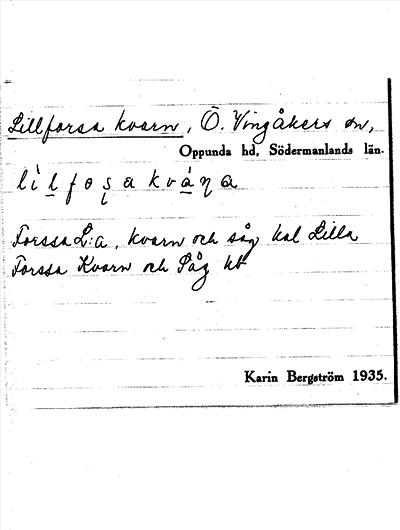 Lillforsa kvarn, Ö. Vingåkers sn,
Oppunda hd, Södermanlands län.
lìlfoʂa kváɳa
Forssa L:a, kvarn och såg kal Lilla
Forssa Kvarn och Såg kb
Karin Bergström 1935.